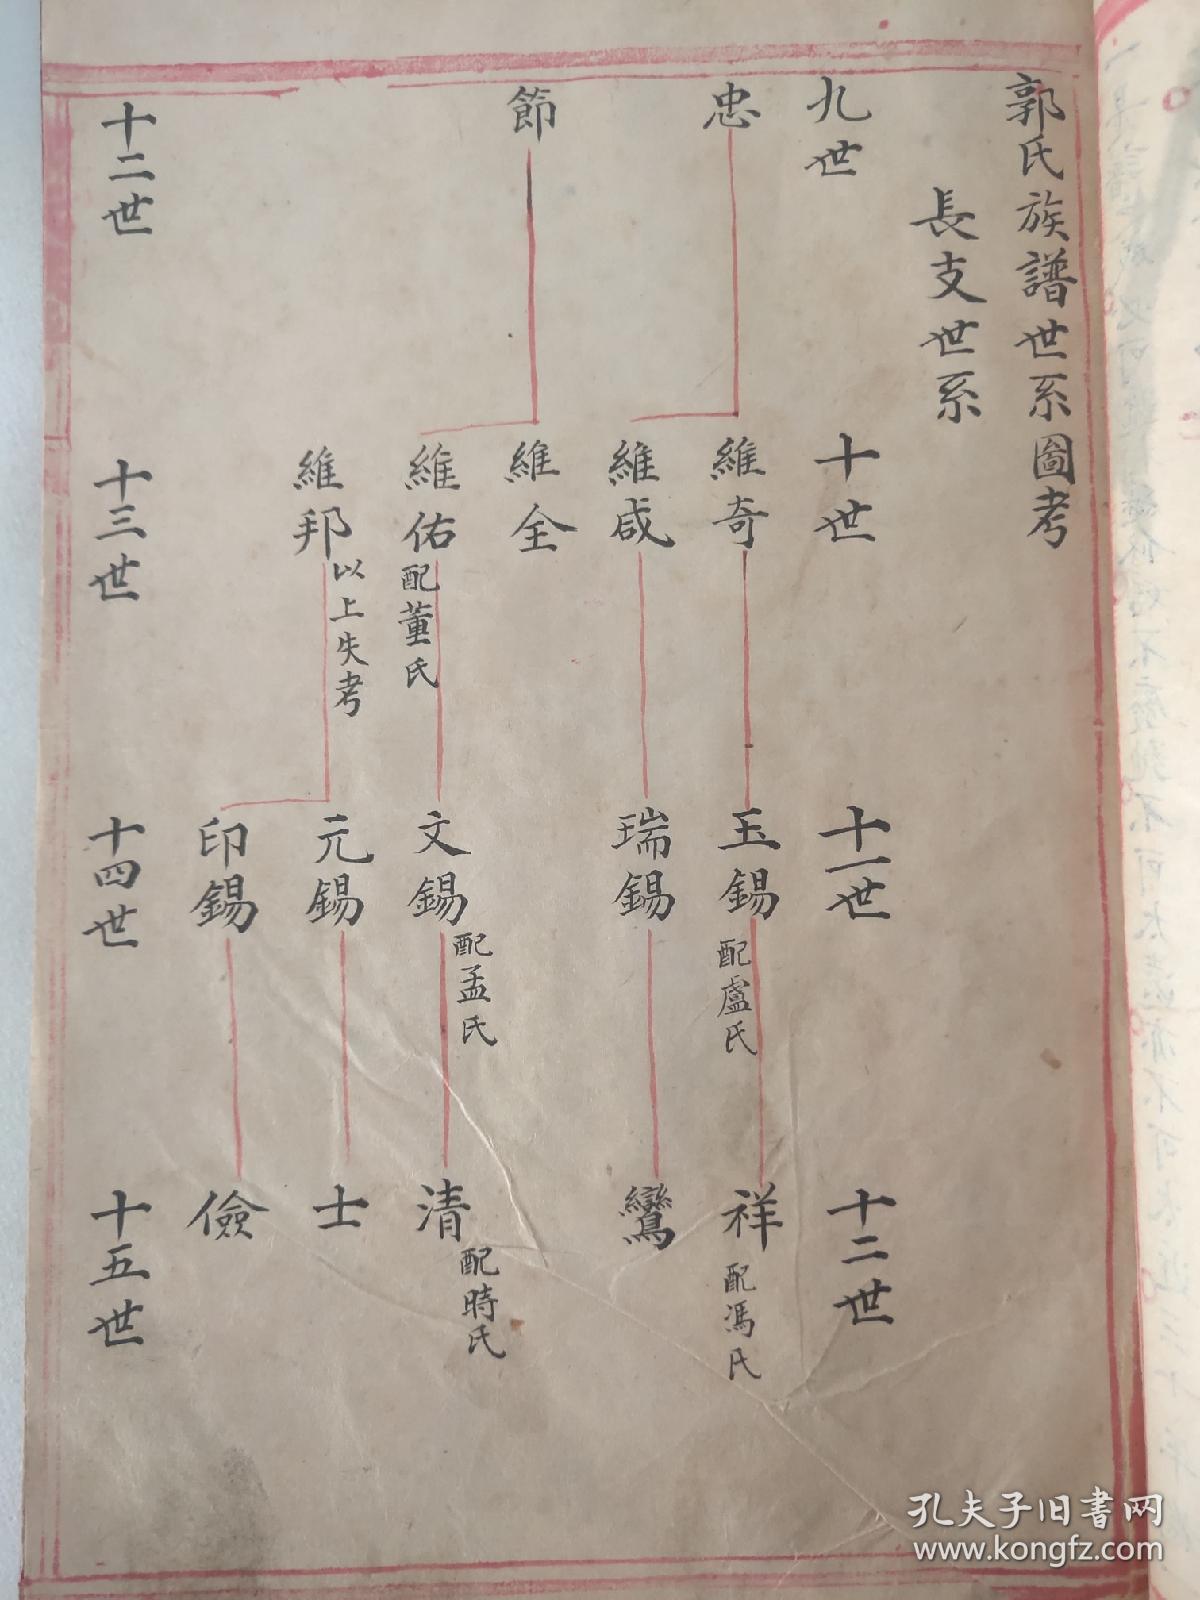 郭氏族譜世系圖考
長支世系
九世
忠
節
十世
維奇
維咸
維全
維佑 配董氏
維邦 以上失考
十一世
玉錫 配盧氏
瑞錫
文錫 配孟氏
元錫
印錫
十二世
祥 配馮氏
鸞
清 配時氏
士
儉
十二世
十三世
十四世
十五世
孔夫子旧书网
www.kongfz.com